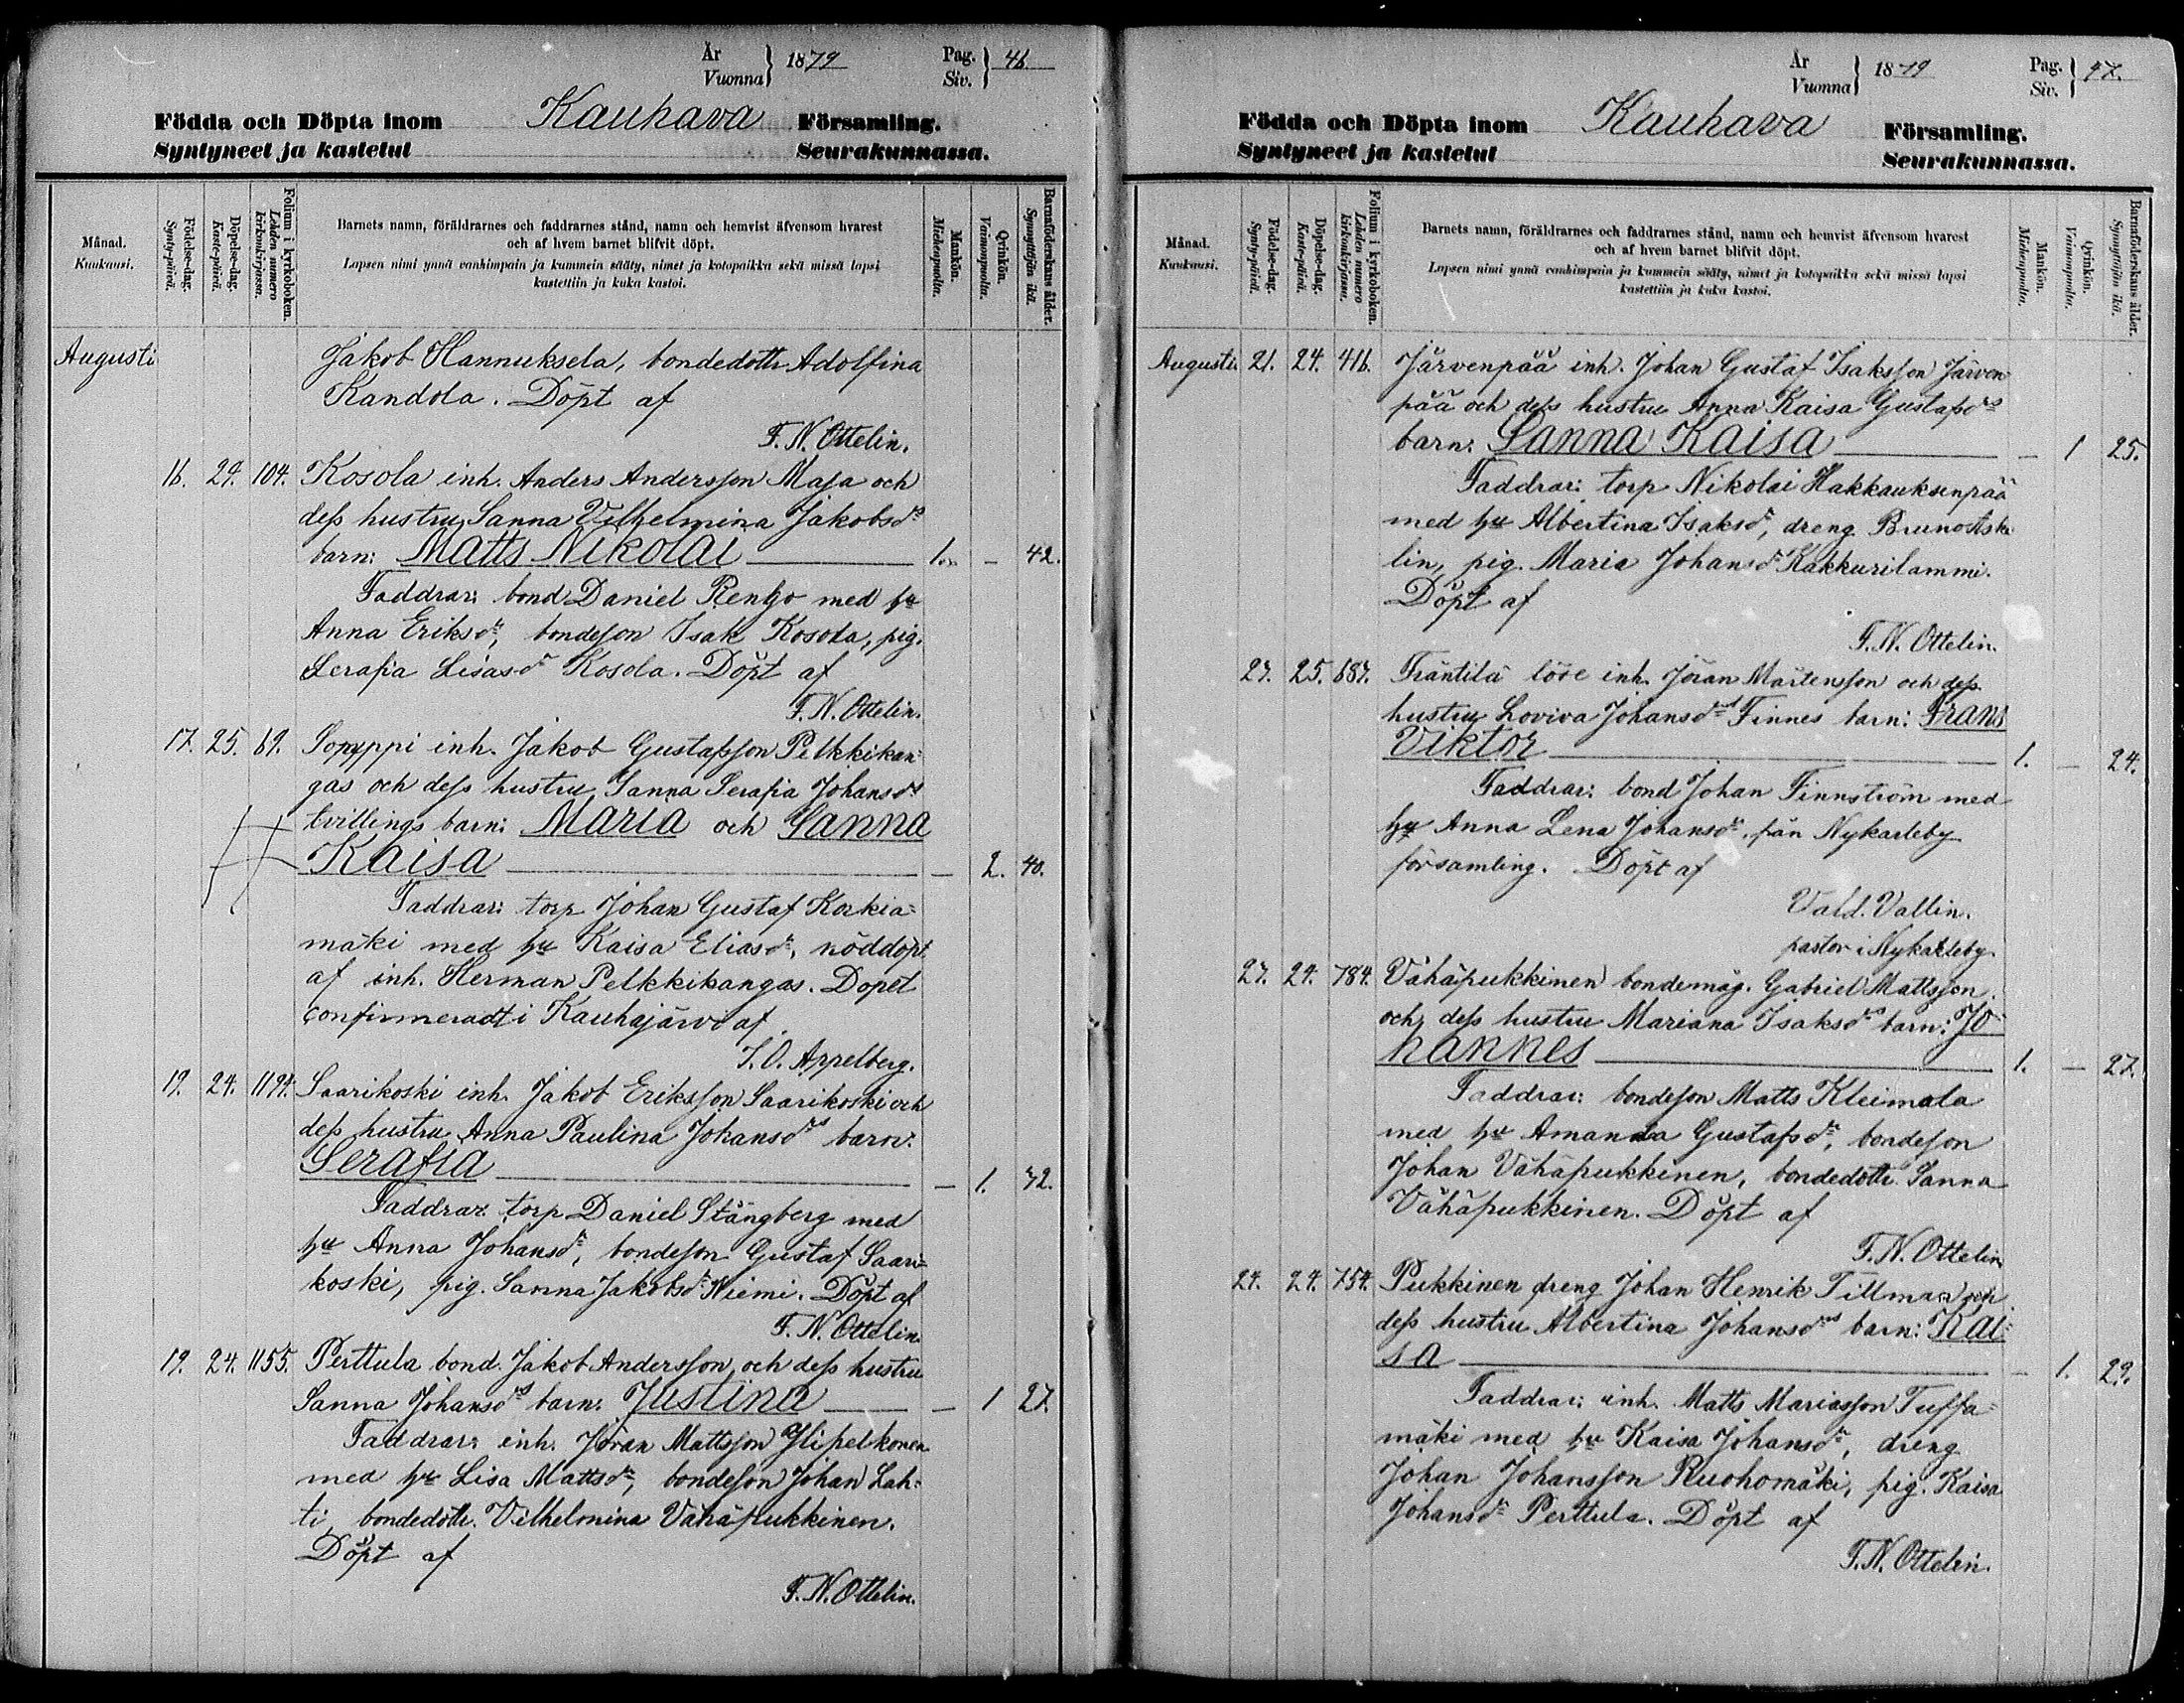 År
Vuonna } 1879
Pag.
Siv. } 46.
Födda och Döpta inom Kauhava Församling.
Syntyneet ja kastetut Seurakunnassa.
Månad.
Kuukausi.
Födelse-dag.
Synty-päivä.
Döpelse-dag.
Kaste-päivä.
Folium i kyrkoboken.
Lehden numero kirkonkirjassa.
Barnets namn, föräldrarnes och faddrarnes stånd, namn och hemvist äfvensom hvarest
och af hvem barnet blifvit döpt.
Lapsen nimi ynnä vanhimpain ja kummein sääty, nimet ja kotopaikka sekä missä lapsi
kastettiin ja kuka kastoi.
Mankön.
Miehenpuolta.
Qvinkön.
Vaimonpuolta.
Barnaföderskans ålder.
Synnyttäjän ikä.
Augusti Jakob Hannuksela, bondedottr Adolfina
Kandola. Döpt af
F. N. Ottelin.
16. 24. 104. Kosola inh. Anders Andersson Masa och
dess hustru Sanna Vilhelmina Jakobsdrs
barn: Matts Nikolai 1. – 42.
Faddrar: bond Daniel Rentjo med hu
Anna Eriksdr, bondeson Isak Kosola, pig.
Serafia Lisasdr Kosola. Döpt af
F. N. Ottelin.
17. 25. 69. inh. Jakob Gustafsson Pelkkikan=
gas och dess hustru Sanna Serafia Johansdrs
tvillings barn: Maria och Sanna
Kaisa – 2. 40.
Faddrar: torp Johan Gustaf Korkia=
mäki med hu Kaisa Eliasdr, nöddöpt
af inh. Herman Pelkkikangas. Dopet
confirmeradt i Kauhajärvi af
Appelberg.
19. 24. 1194. Saarikoski inh. Jakob Eriksson Saarikoski och
dess hustru Anna Paulina Johansdrs barn:
Serafia – 1. 42.
Faddrar: torp Daniel Stångberg med
hu Anna Johansdr, bondeson Gustaf Saari=
koski, pig. Sanna Jakobsdr Niemi. Döpt af
F. N. Ottelin.
19. 24. 1155. Perttula bond. Jakob Andersson och dess hustru
Sanna Johansdrs barn: Justina – 1 27.
Faddrar: inh. Jöran Mattsson Ylipelkonen
med hu Lisa Mattsdr, bondeson Johan Lah=
ti, bondedottr. Vilhelmina Vähäpukkinen.
Döpt af
F. N. Ottelin.
År
Vuonna } 1879
Pag.
Siv. } 47.
Födda och Döpta inom Kauhava Församling.
Syntyneet ja kastetut Seurakunnassa.
Månad.
Kuukausi.
Födelse-dag.
Synty-päivä.
Döpelse-dag.
Kaste-päivä.
Folium i kyrkoboken.
Lehden numero kirkonkirjassa.
Barnets namn, föräldrarnes och faddrarnes stånd, namn och hemvist äfvensom hvarest
och af hvem barnet blifvit döpt.
Lapsen nimi ynnä vanhimpain ja kummein sääty, nimet ja kotopaikka sekä missä lapsi
kastettiin ja kuka kastoi.
Mankön.
Miehenpuolta.
Qvinkön.
Vaimonpuolta.
Barnaföderskans ålder.
Synnyttäjän ikä.
Augusti. 21. 24. 416. Järvenpää inh. Johan Gustaf Isaksson Järven
pää och dess hustru Anna Kaisa Gustafsdrs
barn: Sanna Kaisa – 1 25.
Faddrar: torp Nikolai Hakkauksenpää
med hu Albertina Isaksdr, dreng Bruno Aske
lin, pig. Maria Johansdr Kakkurilammi.
Döpt af
F. N. Ottelin.
27. 25. 687. Träntilä inh. Jöran Mårtensson och dess
hustru Loviva Johansdrs Finnes barn: Frans
Viktor 1. – 24.
Faddrar: bond Johan Finnström med
hu Anna Lena Johansdr. från Nykarleby
församling. Döpt af
Vald. Vallin.
pastor i Nykarleby.
27. 24. 784. Vähäpukkinen bondemåg. Gabriel Mattsson
och dess hustru Mariana Isaksdrs barn: Jo
hannes 1. – 27.
Faddrar: bondeson Matts Kleimola
med hu Amanda Gustafsdr, bondeson
Johan Vähäpukkinen, bondedottr Sanna
Vähäpukkinen. Döpt af
F. N. Ottelin
24. 24. 754. Pukkinen dreng Johan Henrik Tillman och
dess hustru Albertina Johansdrs barn: Kai=
sa – 1. 29.
Faddrar: inh. Matts Mariasson Tuffa=
mäki med hu Kaisa Johansdr, dreng
Johan Johansson Ruohomäki, pig. Kaisa
Johansdr Perttula. Döpt af
F. N. Ottelin.